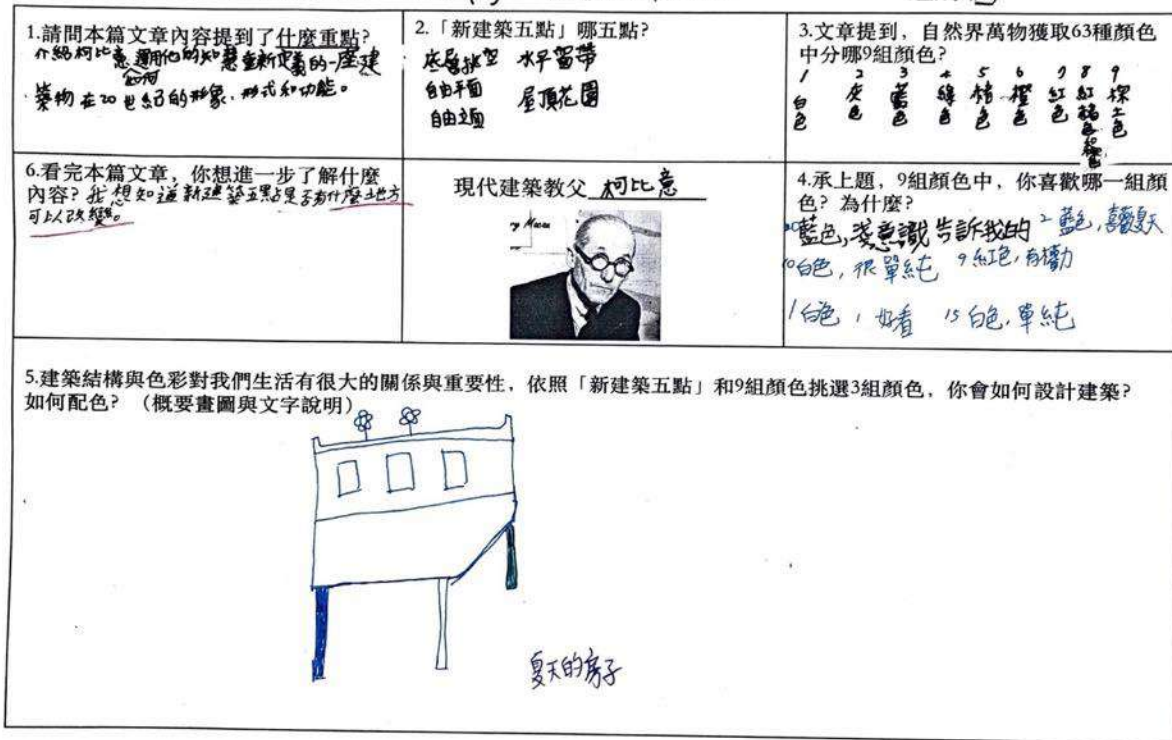 1.請問本篇文章內容提到了什麼重點?
介紹柯比意如何運用他的知慧重新定義的一座建
築物在20世紀的形象、形式和功能。
2.「新建築五點」哪五點?
底層挑空 水平窗帶
自由平面 屋頂花園
自由立面
3.文章提到，自然界萬物獲取63種顏色
中分哪9組顏色?
1 2 3 4 5 6 7 8 9
白色 灰色 藍色 綠色 赭色 橙色 紅色 紅赭色 棕土色
6.看完本篇文章，你想進一步了解什麼
內容? 我想知道新建築五點是否有什麼地方
可以改變。
現代建築教父 柯比意
4.承上題，9組顏色中，你喜歡哪一組顏
色? 為什麼?
藍色,淺意識告訴我的 2 藍色,喜歡夏天
10 白色，很單純 9 紅色,有權力
1 白色，好看 15 白色,單純
5.建築結構與色彩對我們生活有很大的關係與重要性，依照「新建築五點」和9組顏色挑選3組顏色，你會如何設計建築?
如何配色? （概要畫圖與文字說明）
夏天的房子